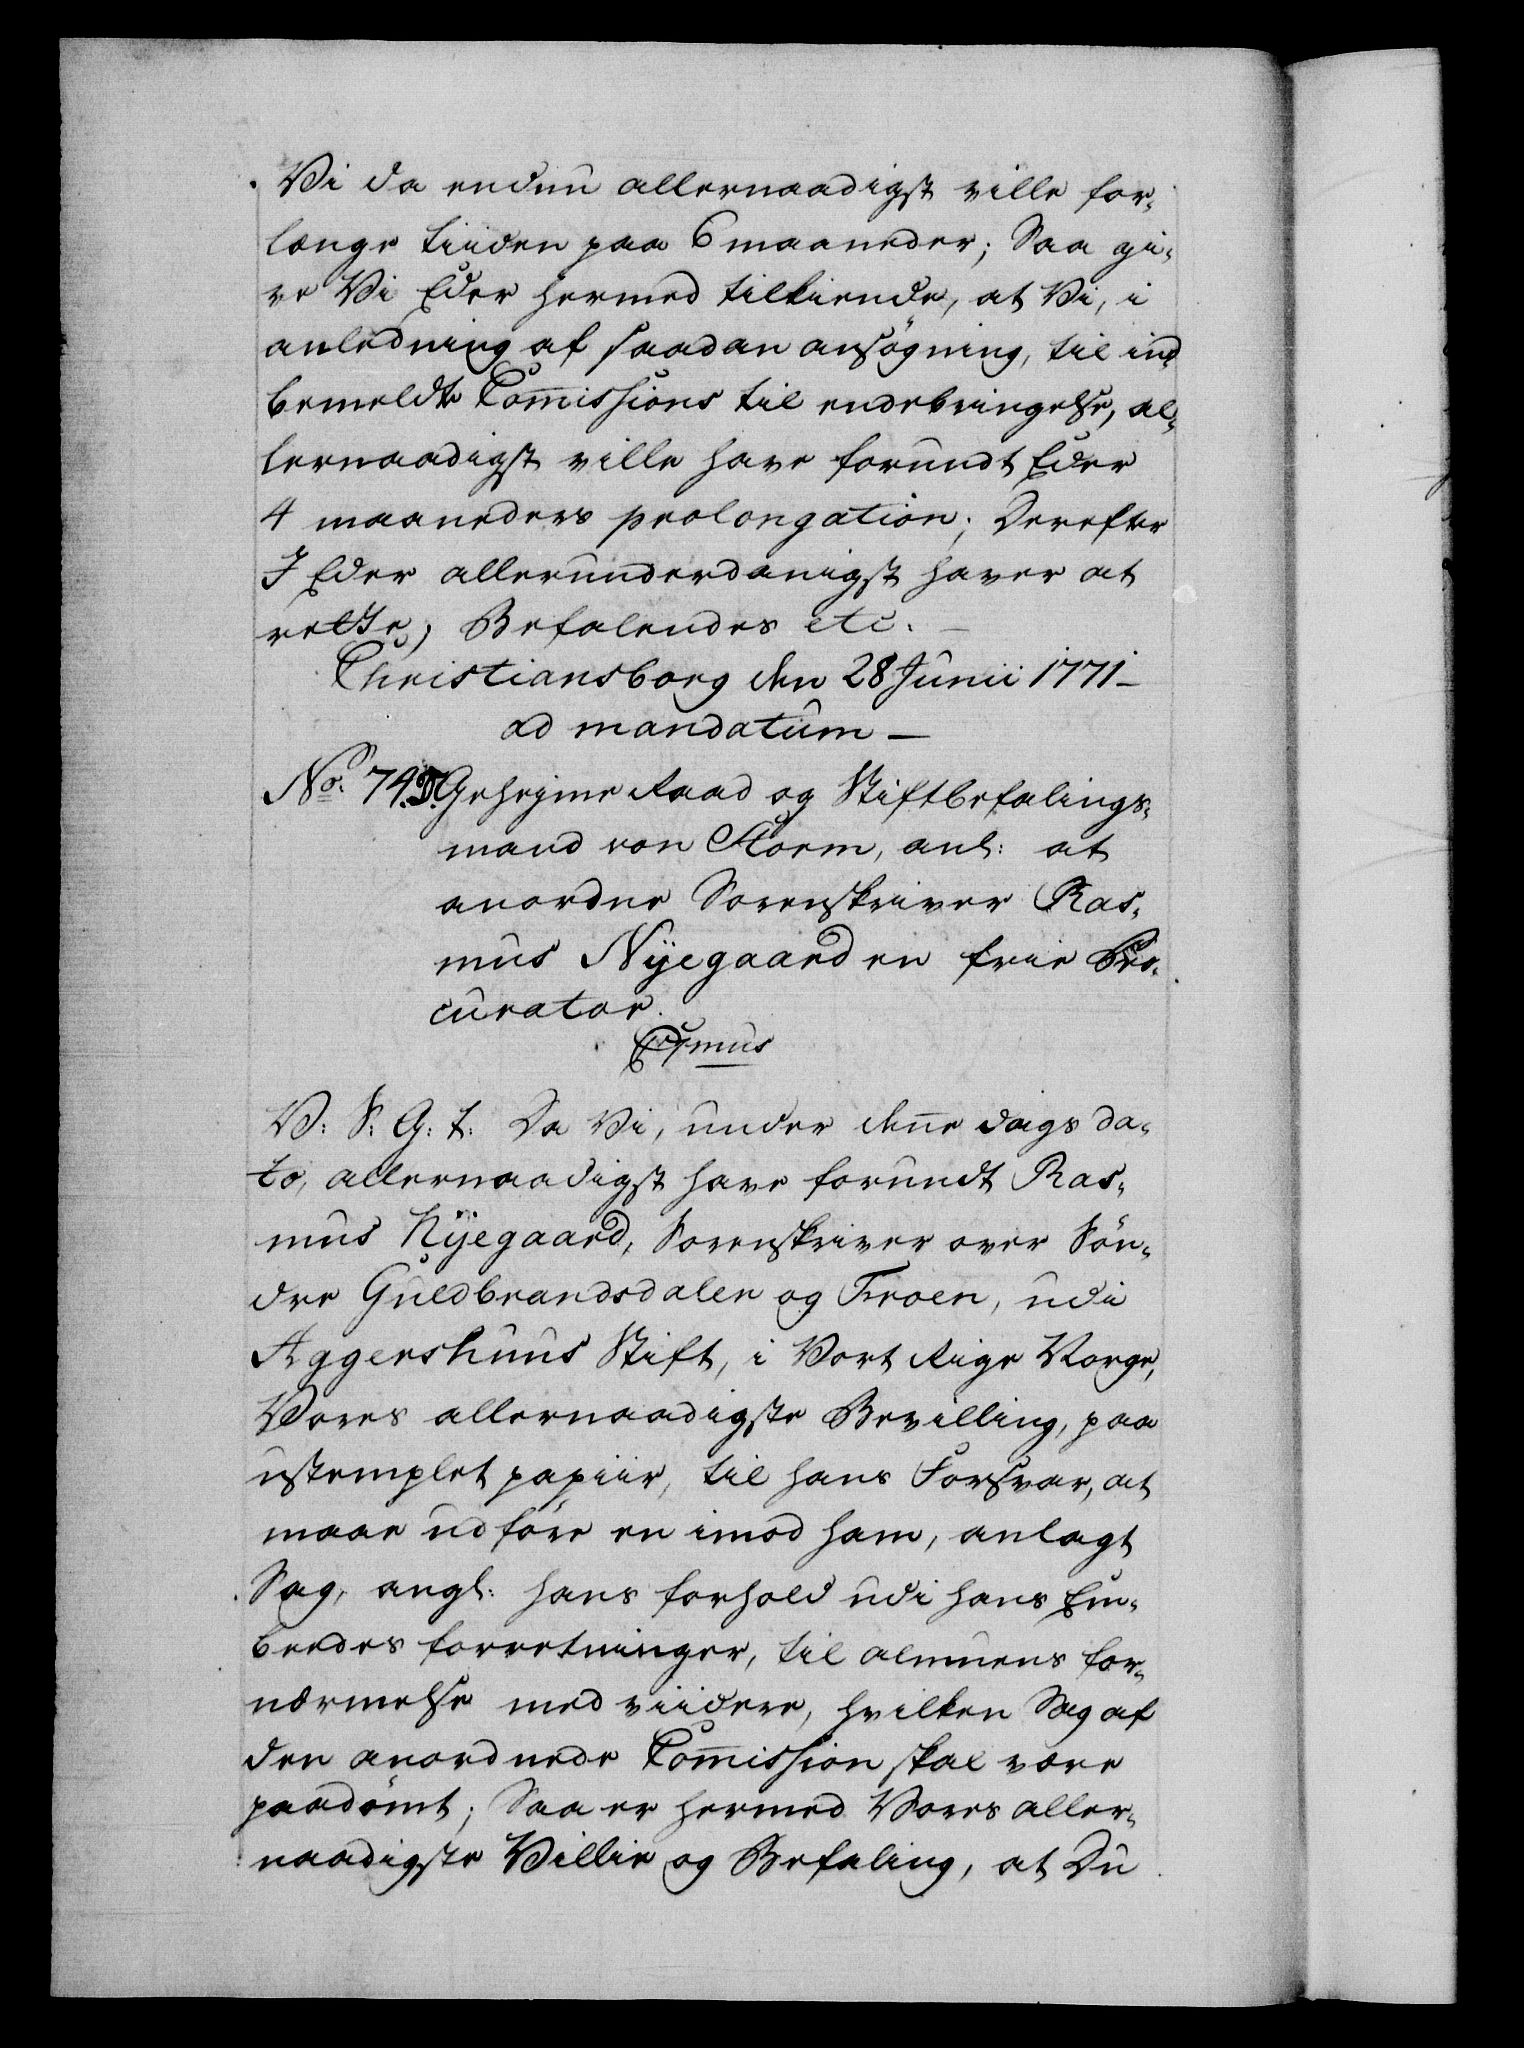 Vi da endnu allernaadigst ville for-
længe tiiden paa 6 maaneder; Saa gi-
ve Vi Eder hermed tilkiende, at Vi, i
anledning af saadan ansögning, til ind-
bemeldte Com̄issions til endebringelse, al-
lernaadigst ville have forundt Eder
4 maaneders prolongation; Derefter
I Eder allerunderdanigst haver at
rette; Befalendes etc. —
Christiansborg den 28 Junii 1771 —
ad mandatum —
No. 74. Geheyme Raad og Stiftbefalings-
mand von Storm, anl: at
anordne Sorenskriver Ras-
mus Nÿegaard en frie Pro-
curator.
V: S: G: t: Da Vi, under den̄e dags da-
to, allernaadigst have forundt Ras-
mus Nÿegaard, Sorenskriver over Sön-
dre Guldbrandsdalen og Froen, udi
Aggershuus Stift, i Vort Rige Norge,
Vores allernaadigste Bevilling, paa
ustemplet papiir, til hans Forsvar, at
maae udföre en imod ham, anlagt
Sag, angl: hans forhold udi hans Em-
beedes forretninger, til almuens for-
nærmelse med viidere, hvilken Sag af
den anordnede Com̄ission skal være
paadömt; Saa er hermed Vores aller-
naadigste Villie og Befaling, at Du